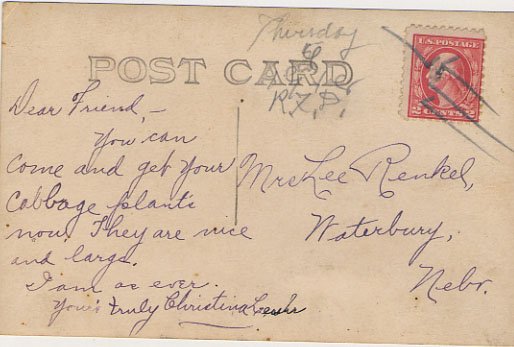 Thursday
R.F.D.
POST CARD
U.S. POSTAGE
2 CENTS 2
Dear Friend,—
You can
come and get your
cabbage plants
now. They are nice
and large.
I am as ever.
Yours truly Christina
Mrs Lee Renkel,
Waterbury,
Nebr.